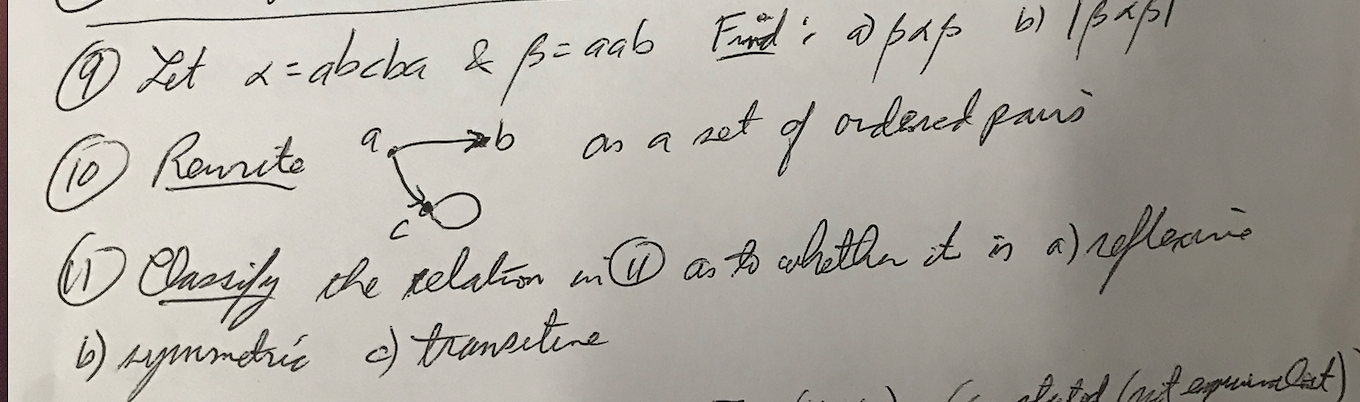 ⑨ Let α = abcba & β = aab Find : a) βαβ b) |βαβ|
⑩ Rewrite a b as a set of ordered pairs
c
⑪ Classify the relation in ⑪ as to whether it is a) reflexive
b) symmetric c) transitive
(not equivalent)